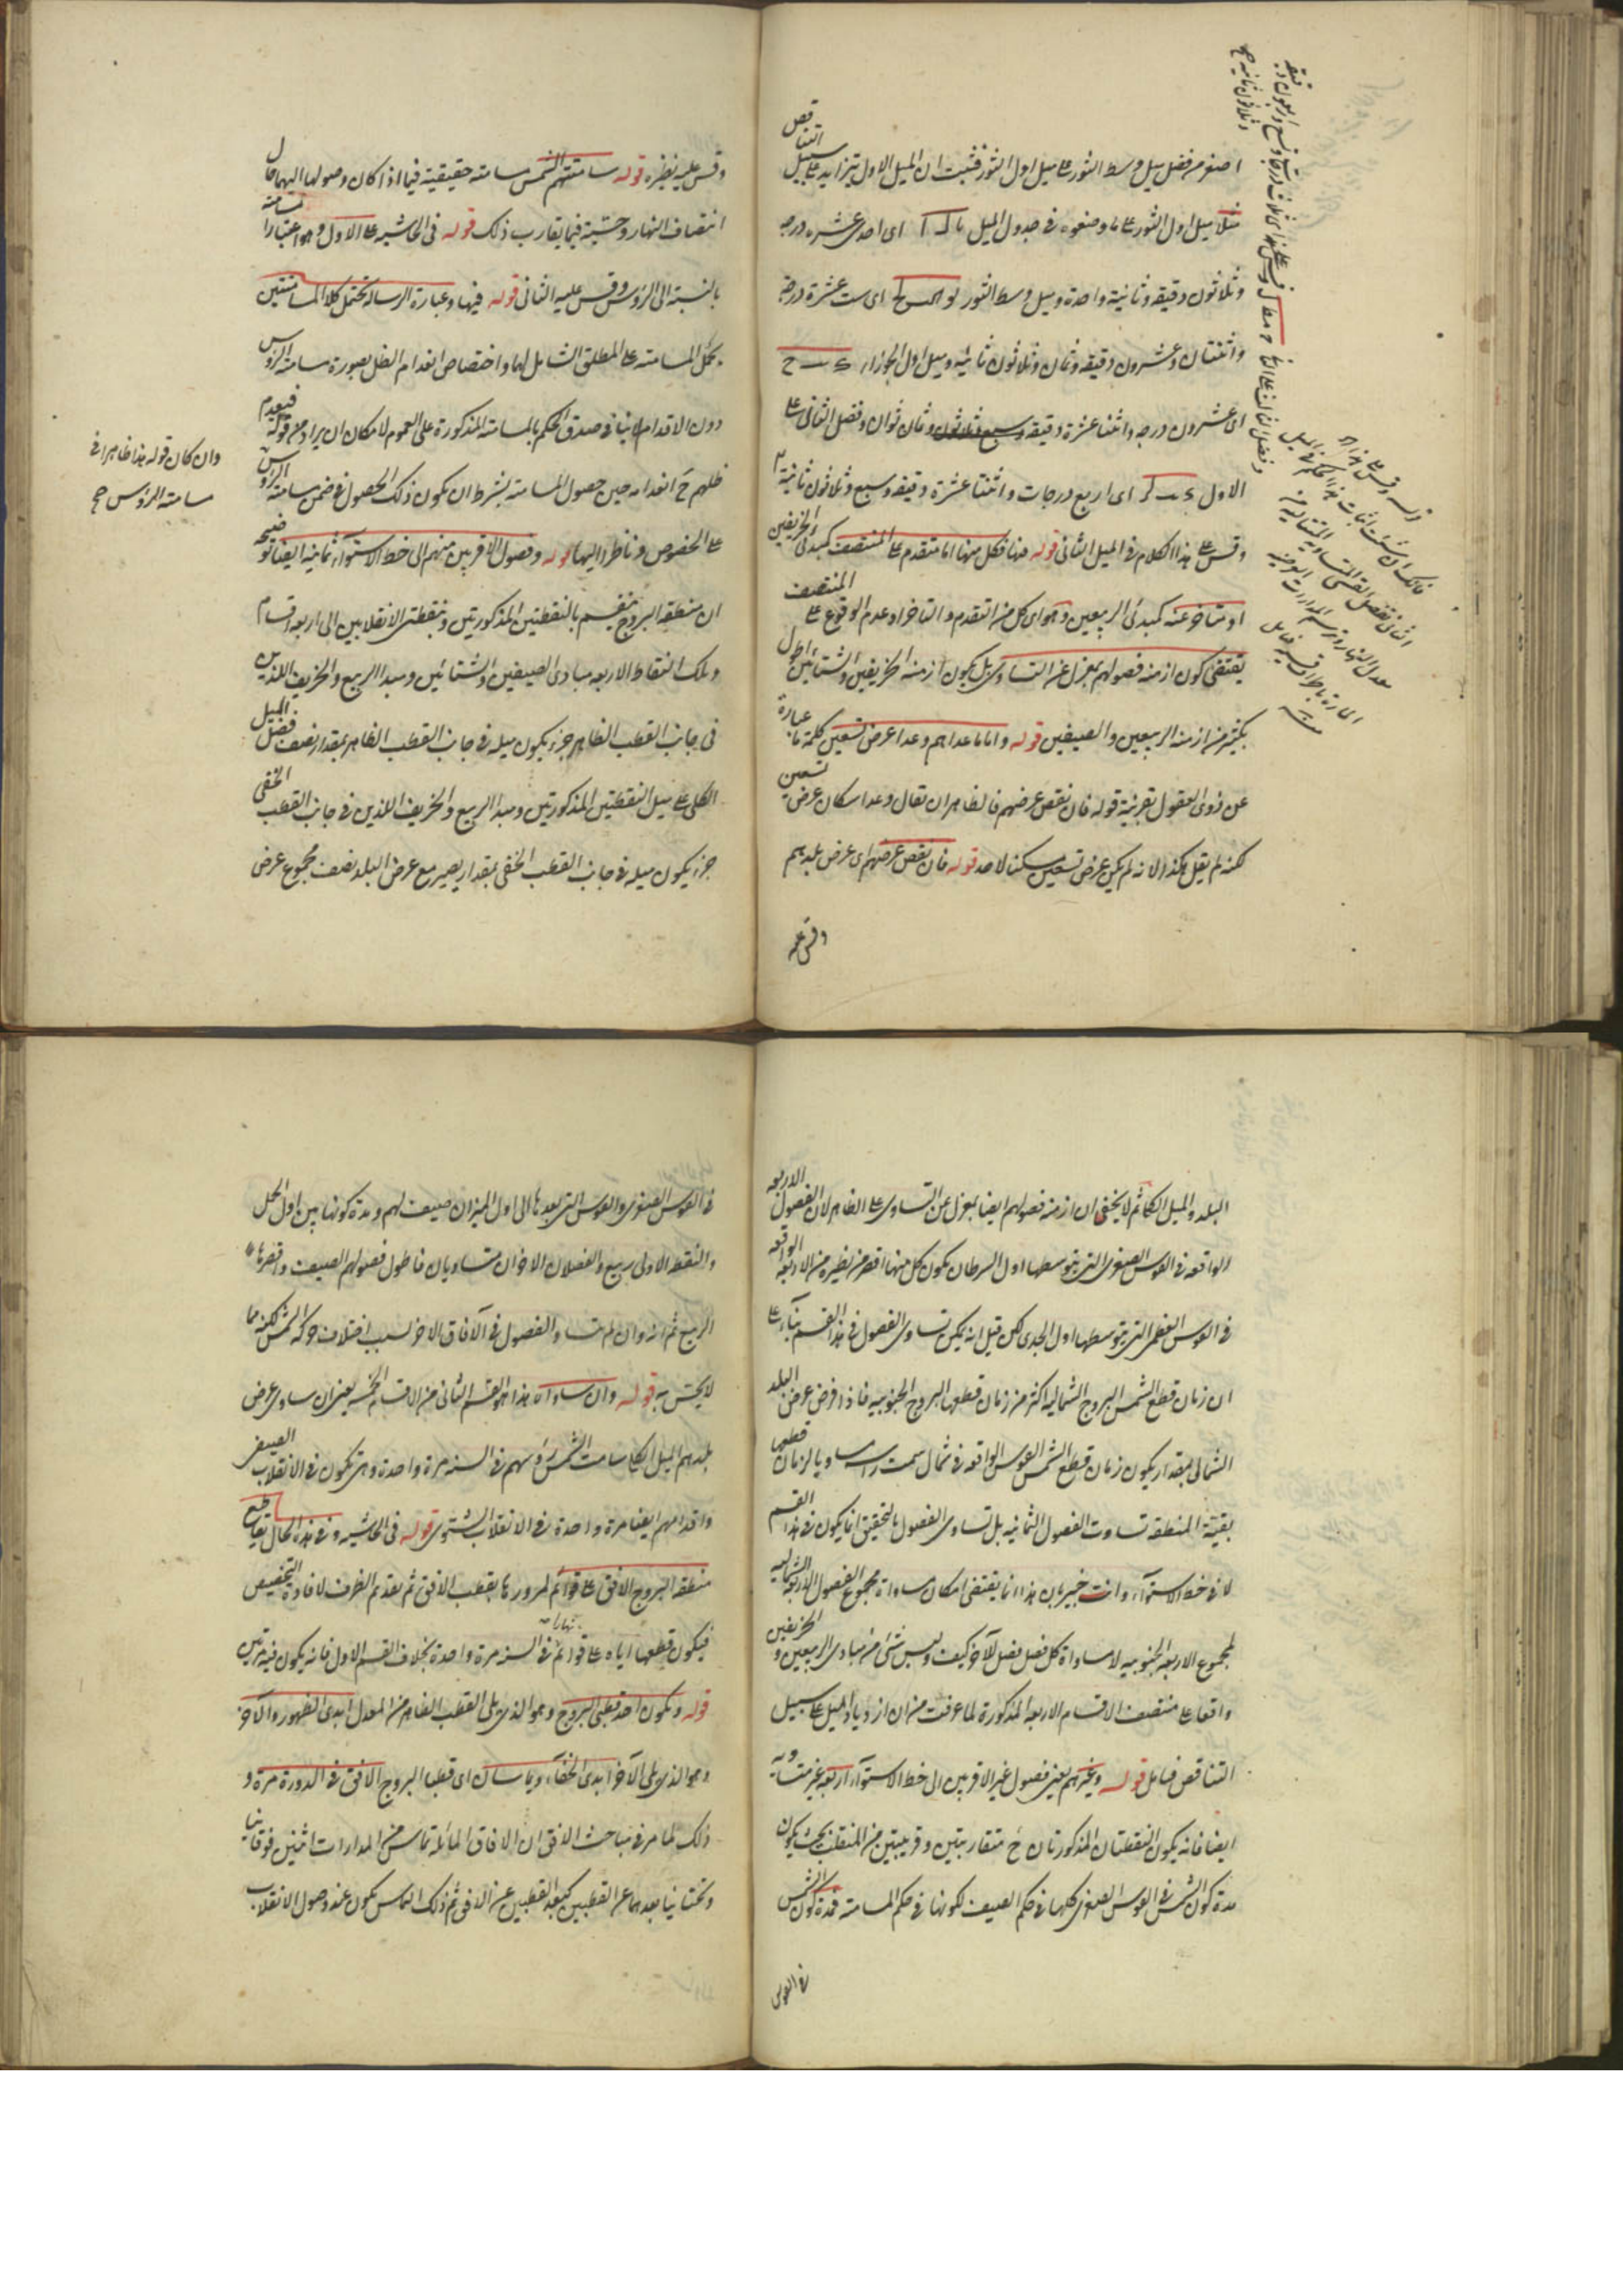 اصغر من فضل ميل وسط الثور على ميل اول الثور فثبت ان الميل الاول يتزايد على سبيل التناقص
مثلا ميل اول الثور على ما وضعوه فى جدول الميل يا ل ا اى احدى عشره درجه
وثلاثون دقيقه وثانية واحدة وميل وسط الثور اى ست عشرة درجة
واثنتان وعشرون دقيقه وثمان وثلاثون ثانيه وميل اول الجوزاء
اى عشرون درجه واثنتا عشرة دقيقه وثمان ثوان وفضل الثانى على
الاول اى اربع درجات واثنتا عشرة دقيقه وسبع وثلاثون ثانية
وقس على هذا الكلام فى الميل الثانى قوله منها فكل منها اما متقدم على المنتصف كمبدئى الخريفين
او متأخر عنه كمبدئى الربيعين وهو اى كل من التقدم والتاخر او عدم الوقوع على المنتصف
يقتضى كون ازمنه فصولهم بمعزل عن التساوى بل يكون ازمنه الخريفين والشتائين اطول
بكثير من ازمنه الربيعين والصيفين قوله واما ما عداهم وعدا عرض تسعين كلمة ما عبارة
عن ذوى العقول بقرينة قوله فان نقص عرضهم فالظاهر ان تقال وعدا سكان عرض تسعين
لكنه لم يقل هكذا لانه لم يكن عرض تسعين مسكنا لاحد قوله فان نقص عرضهم اى عرض بلدهم
وقس عليه نظيره قوله سامتتهم الشمس مسامته حقيقية فيما اذا كان وصولها اليهما حال
انتصاف النهار وحسية فيما يقارب ذلك قوله فى الحاشيه على الاول وهو اعتبار المسامته
بالنسبة الى الرؤس وقس عليه الثانى قوله فيها وعبارة الرسالة تحتمل كلا المسامتتين
بحمل المسامته على المطلق الشامل لهما واختصاص انعدام الظل بصورة مسامتة الرؤس
دون الاقدام لا ينافى صدق الحكم بالمسامته المذكورة على العموم لامكان ان يراد من قوله فينعدم
ظلهم ح انعدامه حين حصول المسامته بشرط ان يكون ذلك الحصول فى ضمن مسامتة الرؤس
وان كان قوله هذا ظاهرا فى
مسامتة الرؤس صح
على الخصوص وناظرا اليها قوله وفصول الاقربين منهم الى خط الاستواء ثمانية ايضا توضيحه
ان منطقة البروج ينقسم بالنقطتين المذكورتين وبنقطتى الانقلابين الى اربعه اقسام
وتلك النقاط الاربعه مبادى الصيفين والشتائين ومبدا الربيع والخريف اللذين
فى جانب القطب الظاهر جزء يكون ميله فى جانب القطب الظاهر بمقدار نصف فضل الميل
الكلى على ميل النقطتين المذكورتين ومبدا الربيع والخريف اللذين فى جانب القطب الخفى
جزء يكون ميله فى جانب القطب الخفى بمقدار يصير مع عرض البلد نصف مجموع عرض
البلد والميل الكلى ثم لا يخفى ان ازمنه فصولهم ايضا بمعزل عن التساوى على الظاهر لان الفصول الاربعه
الواقعه فى القوس الصغرى التى يتوسطها اول السرطان يكون كل منها اقصر من نظيره من الاربعه الواقعه
فى القوس العظمى التى يتوسطها اول الجدى لكن قيل انه يمكن تساوى الفصول فى هذا القسم بناء على
ان زمان قطع الشمس البروج الشماليه اكثر من زمان قطعها البروج الجنوبيه فاذا فرض عرض البلد
الشمالى بمقدار يكون زمان قطع الشمس القوس الواقعه فى شمال سمت راسه مساويا لزمان قطعها
بقية المنطقه تساوت الفصول الثمانيه بل تساوى الفصول بالتحقيق انما يكون فى هذا القسم
لا فى خط الاستواء وانت خبير بان هذا انما يقتضى امكان مساواة مجموع الفصول الاربعه الشماليه
لمجموع الاربعه الجنوبيه لا مساواة كل فصل فصل للآخر كيف وليس شئ من مبادى الربيعين والخريفين
واقعا على منتصف الاقسام الاربعه المذكورة لما عرفت من ان ازدياد الميل على سبيل
التناقص فتأمل قوله وغيرهم يعنى فصول غير الاقربين الى خط الاستواء اربعه غير متساويه
ايضا فانه يكون النقطتان المذكورتان ح متقاربتين وقريبتين من المنقلب بحيث يكون
مدة كون الشمس فى القوس الصغرى كلها فى حكم الصيف لكونها فى حكم المسامته فمدة كون الشمس
فى القوس
فى القوس الصغرى والقوس التى بعدها الى اول الميزان صيف لهم ومدة كونها بين اول الحمل
والنقطه الاولى ربيع والفصلان الاخران متساويان فاطول فصولهم الصيف واقصرها
الربيع ثم انه وان لم تتساو الفصول فى الآفاق الاخر بسبب اختلاف حركة الشمس لكنه مما
لا يحس به قوله وان ساواه هذا هو القسم الثانى من الاقسام الخمسه يعنى ان ساوى عرض
بلدهم الميل الكلى سامت الشمس رؤسهم فى السنه مرة واحدة وهى تكون فى الانقلاب الصيفى
واقدامهم ايضا مرة واحدة فى الانقلاب الشتوى قوله فى الحاشيه وفى هذه الحال يقاطع
منطقه البروج الافق على قوائم لمرورها بقطب الافق ثم تقديم الظرف لافادة التخصيص
فيكون قطعها اياه على قوائم نهارا فى السنه مرة واحدة بخلاف القسم الاول فانه يكون فيه مرتين
قوله ويكون احد قطبى البروج وهو الذى يلى القطب الظاهر من المعدل ابدى الظهور والآخر
وهو الذى يلى الآخر ابدى الخفاء ويماسان اى قطبا البروج الافق فى الدورة مرة و
ذلك لما مر فى مباحث الافق ان الافاق المائلة تماس من المدارات اثنين فوقانيا
وتحتانيا بعدهما عن القطبين كبعد القطبين عن الافق ثم ذلك التماس يكون عند وصول الانقلاب